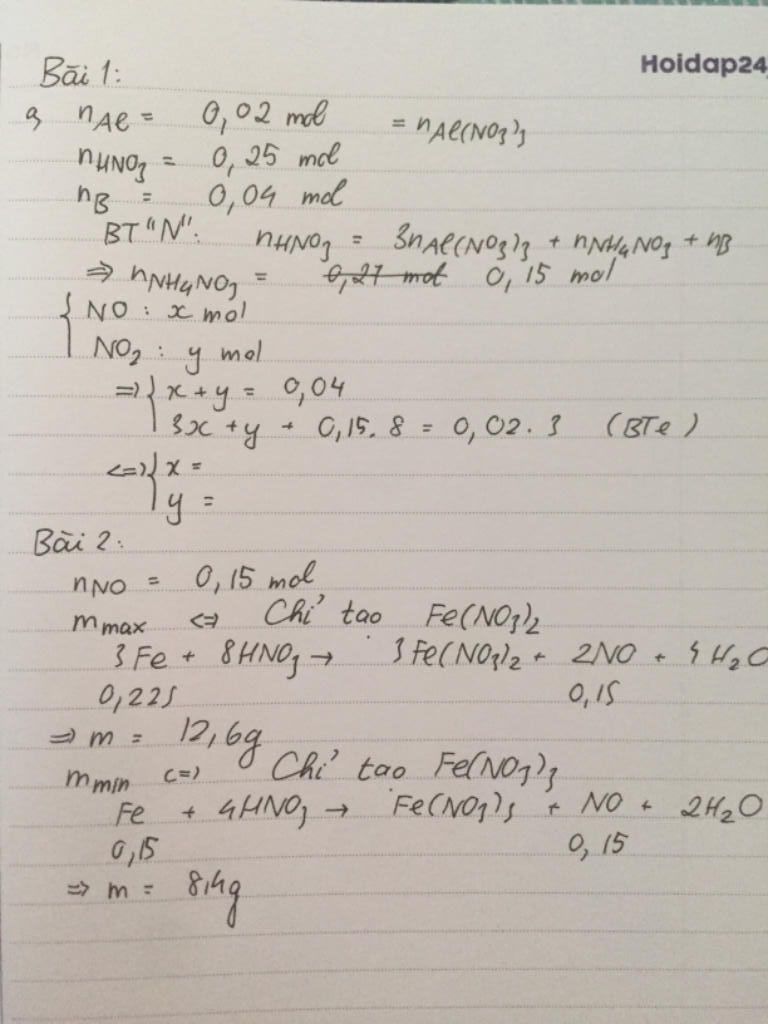 Hoidap24
Bài 1:
a, nAl = 0,02 mol = nAl(NO3)3
nHNO3 = 0,25 mol
nB = 0,04 mol
BT "N": nHNO3 = 3nAl(NO3)3 + nNH4NO3 + nB
=> nNH4NO3 = 0,27 mol 0,15 mol
{ NO : x mol
NO2 : y mol
=> { x + y = 0,04
3x + y + 0,15.8 = 0,02.3 (BTe)
<=> { x =
y =
Bài 2:
nNO = 0,15 mol
mmax <=> Chỉ tạo Fe(NO3)2
3Fe + 8HNO3 → 3Fe(NO3)2 + 2NO + 4H2O
0,225 0,15
=> m = 12,6g
mmin <=> Chỉ tạo Fe(NO3)3
Fe + 4HNO3 → Fe(NO3)3 + NO + 2H2O
0,15 0,15
=> m = 8,4g